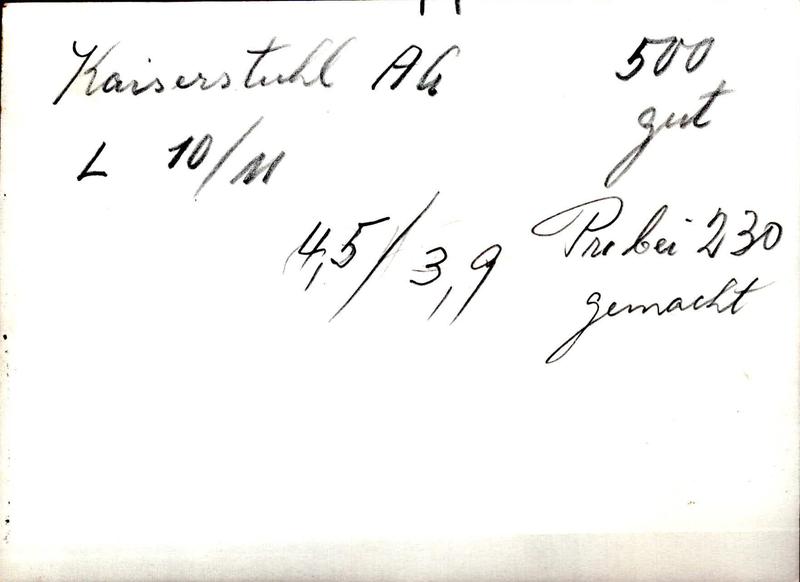 Kaiserstuhl AG
500
gut
L 10/11
4,5/3,9
Pr bei 230
gemacht